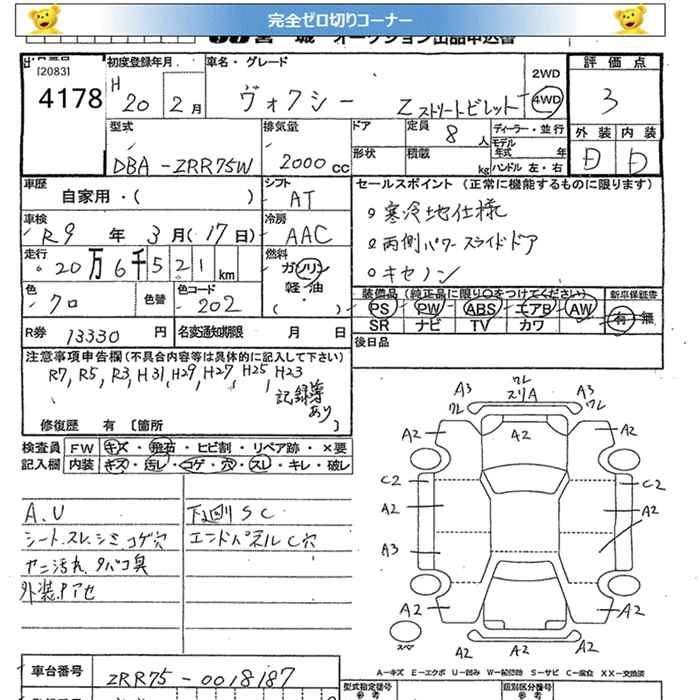 完全ゼロ切りコーナー
宮 城 オークション出品申込書
[2083]
4178
初度登録年月
H 20 2月
車名・グレード
ヴォクシー Z ストリートビレット
2WD
4WD
評価点
3
外装 内装
D D
型式
DBA-ZRR75W
排気量
2000 cc
ドア
形状
定員 8 人
積載 kg
ディーラー・並行
モデル年式 年
ハンドル 左・右
車歴
自家用・( )
シフト
AT
車検
R9 年 3月(17日)
冷房
AAC
走行
20万6千521km
燃料
ガソリン
軽・油
( )
色
クロ
色替
色コード
202
R券 13330 円
名変通知期限 月 日
セールスポイント (正常に機能するものに限ります)
。寒冷地仕様
。両側パワースライドドア
。キセノン
装備品 (純正品に限り○をつけてください)
新車保証書
PS PW ABS エアB AW
有・無
SR ナビ TV カワ
後日品
注意事項申告欄(不具合内容等は具体的に記入して下さい)
R7, R5, R3, H31, H29, H27, H25, H23
記録簿
あり
修復歴 有 〔箇所 〕
検査員
記入欄
FW キズ・飛石・ヒビ割・リペア跡・×要
内装 キズ・汚レ・コゲ・穴・スレ・キレ・破レ
A.U
シート.スレ.シミ.コゲ穴
ヤニ汚れ.タバコ臭
外装.Pアセ
下回りSC
エンドパネルC穴
A3 ワレ スリA A3
ワレ ワレ
A2 A2 A2
C2 C2
A2 A2
A3 A2
A2 A2
スペア A2 A2
A-キズ E-エクボ U-凹み W-板金跡 S-サビ C-腐食 XX-交換済
車台番号
ZRR75-0018187
型式指定番号
参考
類別区分番号
参考